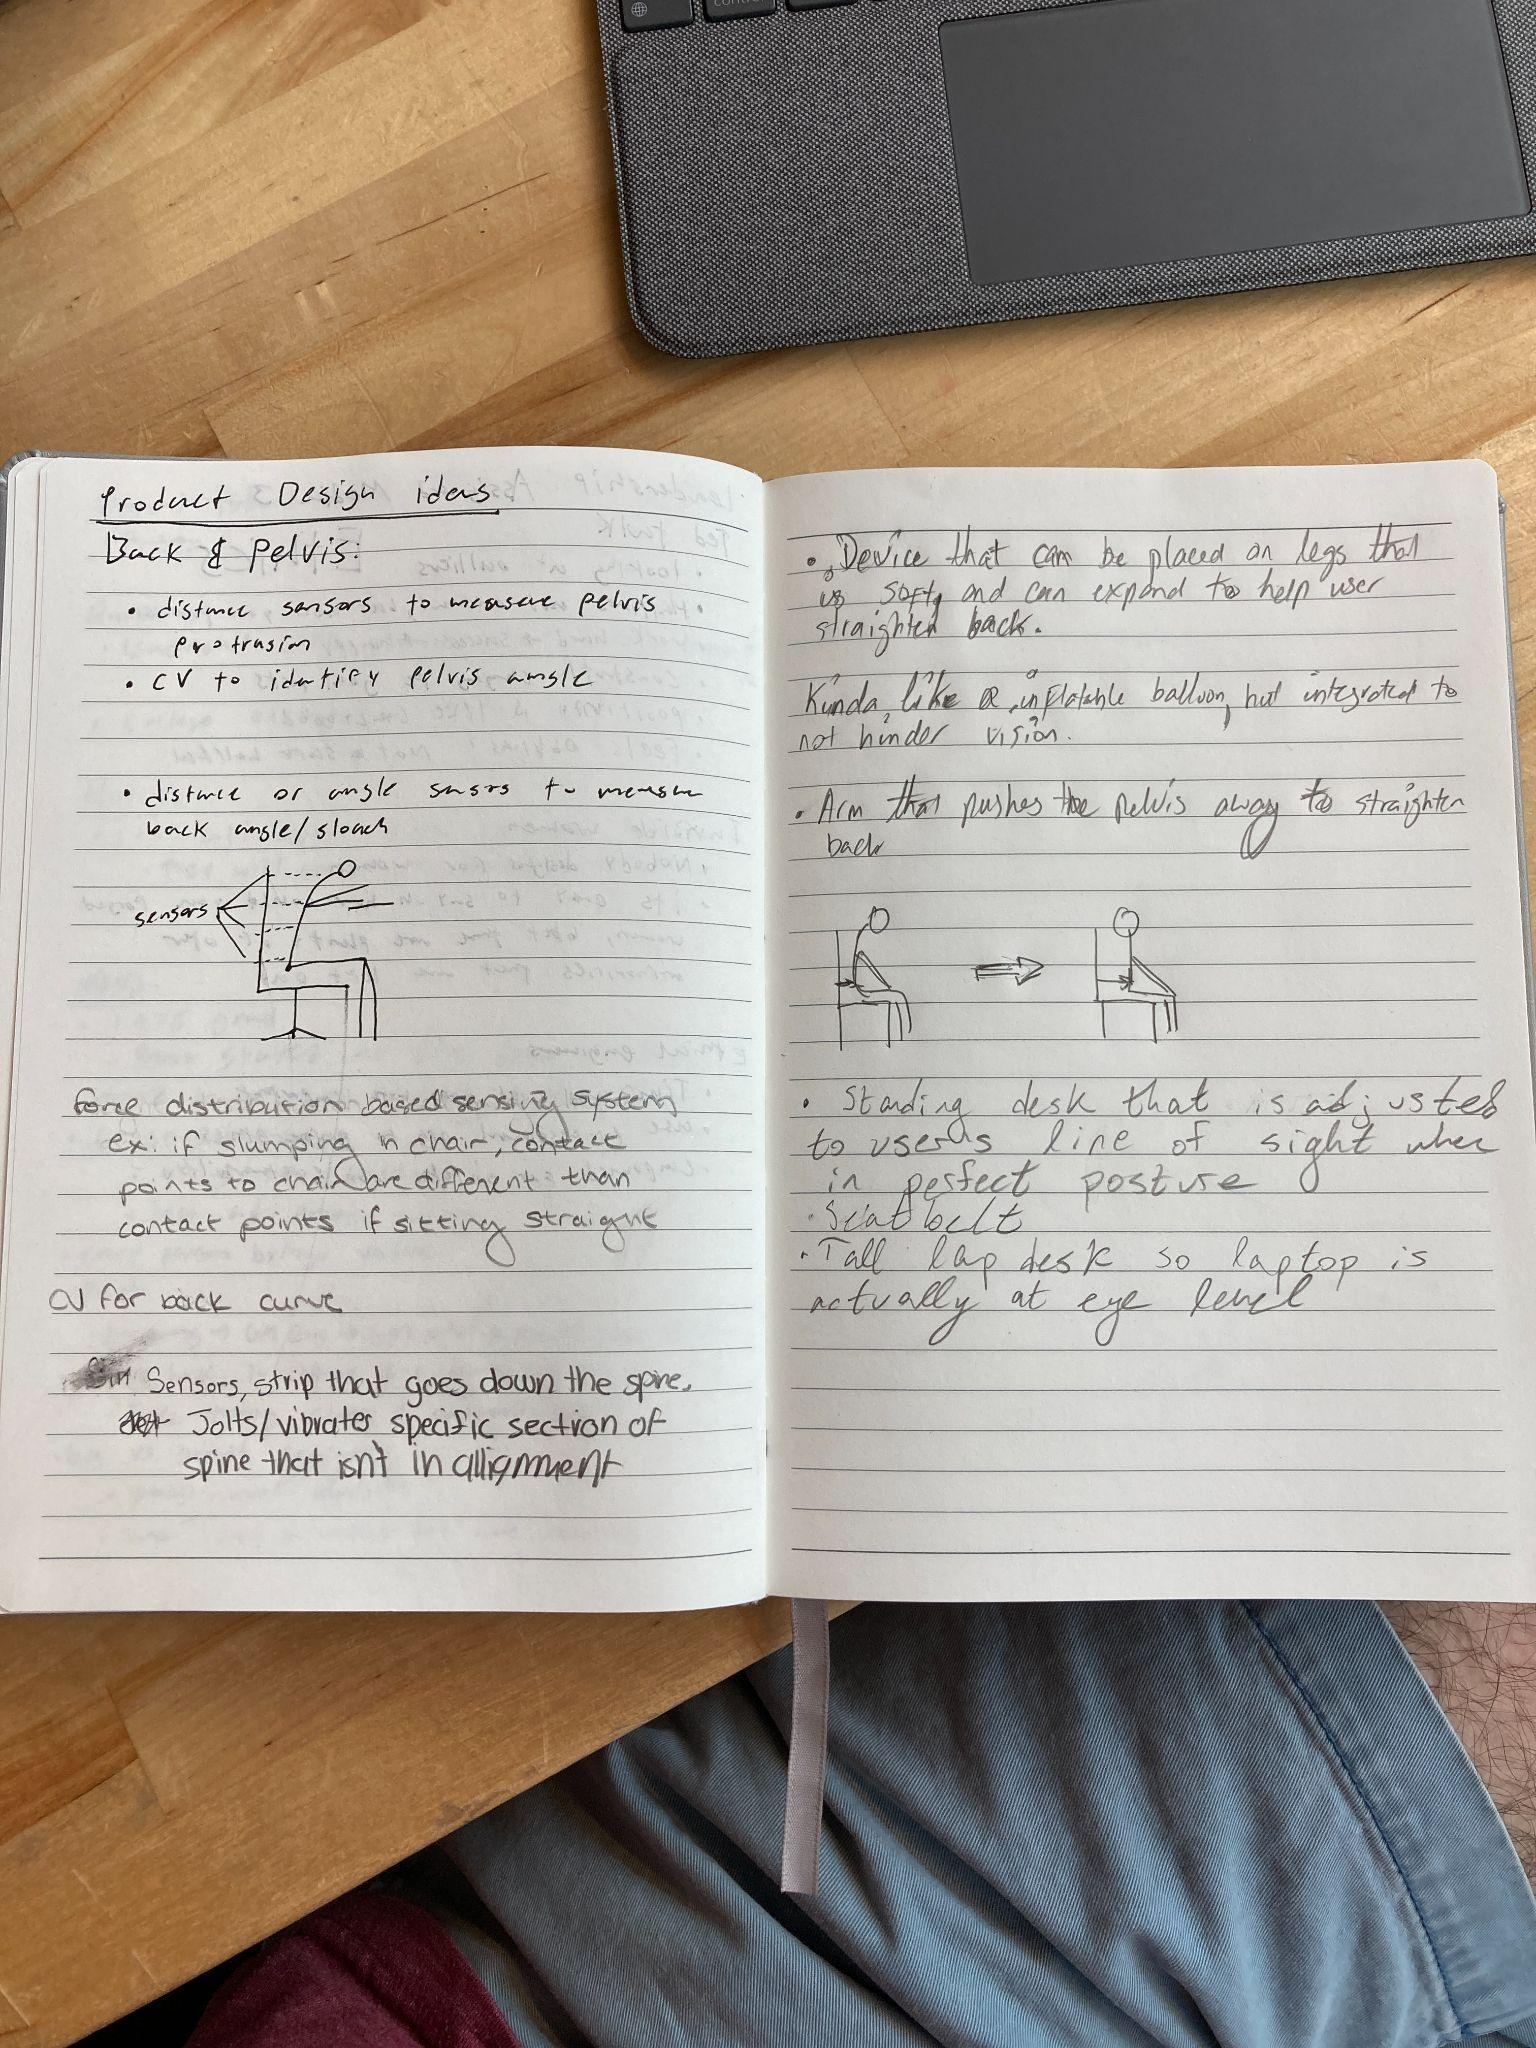 Product Design ideas
Back & Pelvis:
• distance sensors to measure pelvis
protrusion
• CV to identify pelvis angle
• distance or angle sensors to measure
back angle/slouch
sensors
force distribution based sensing system
ex: if slumping in chair, contact
points to chair are different than
contact points if sitting straight
CV for back curve
Sensors, strip that goes down the spine.
Jolts/vibrates specific section of
spine that isn't in allignment
• Device that can be placed on legs that
is soft, and can expand to help user
straighten back.
Kinda like a inflatable balloon, but integrated to
not hinder vision.
• Arm that pushes the pelvis away to straighten
back
• Standing desk that is adjusted
to user's line of sight when
in perfect posture
• Seat belt
• Tall lap desk so laptop is
actually at eye level